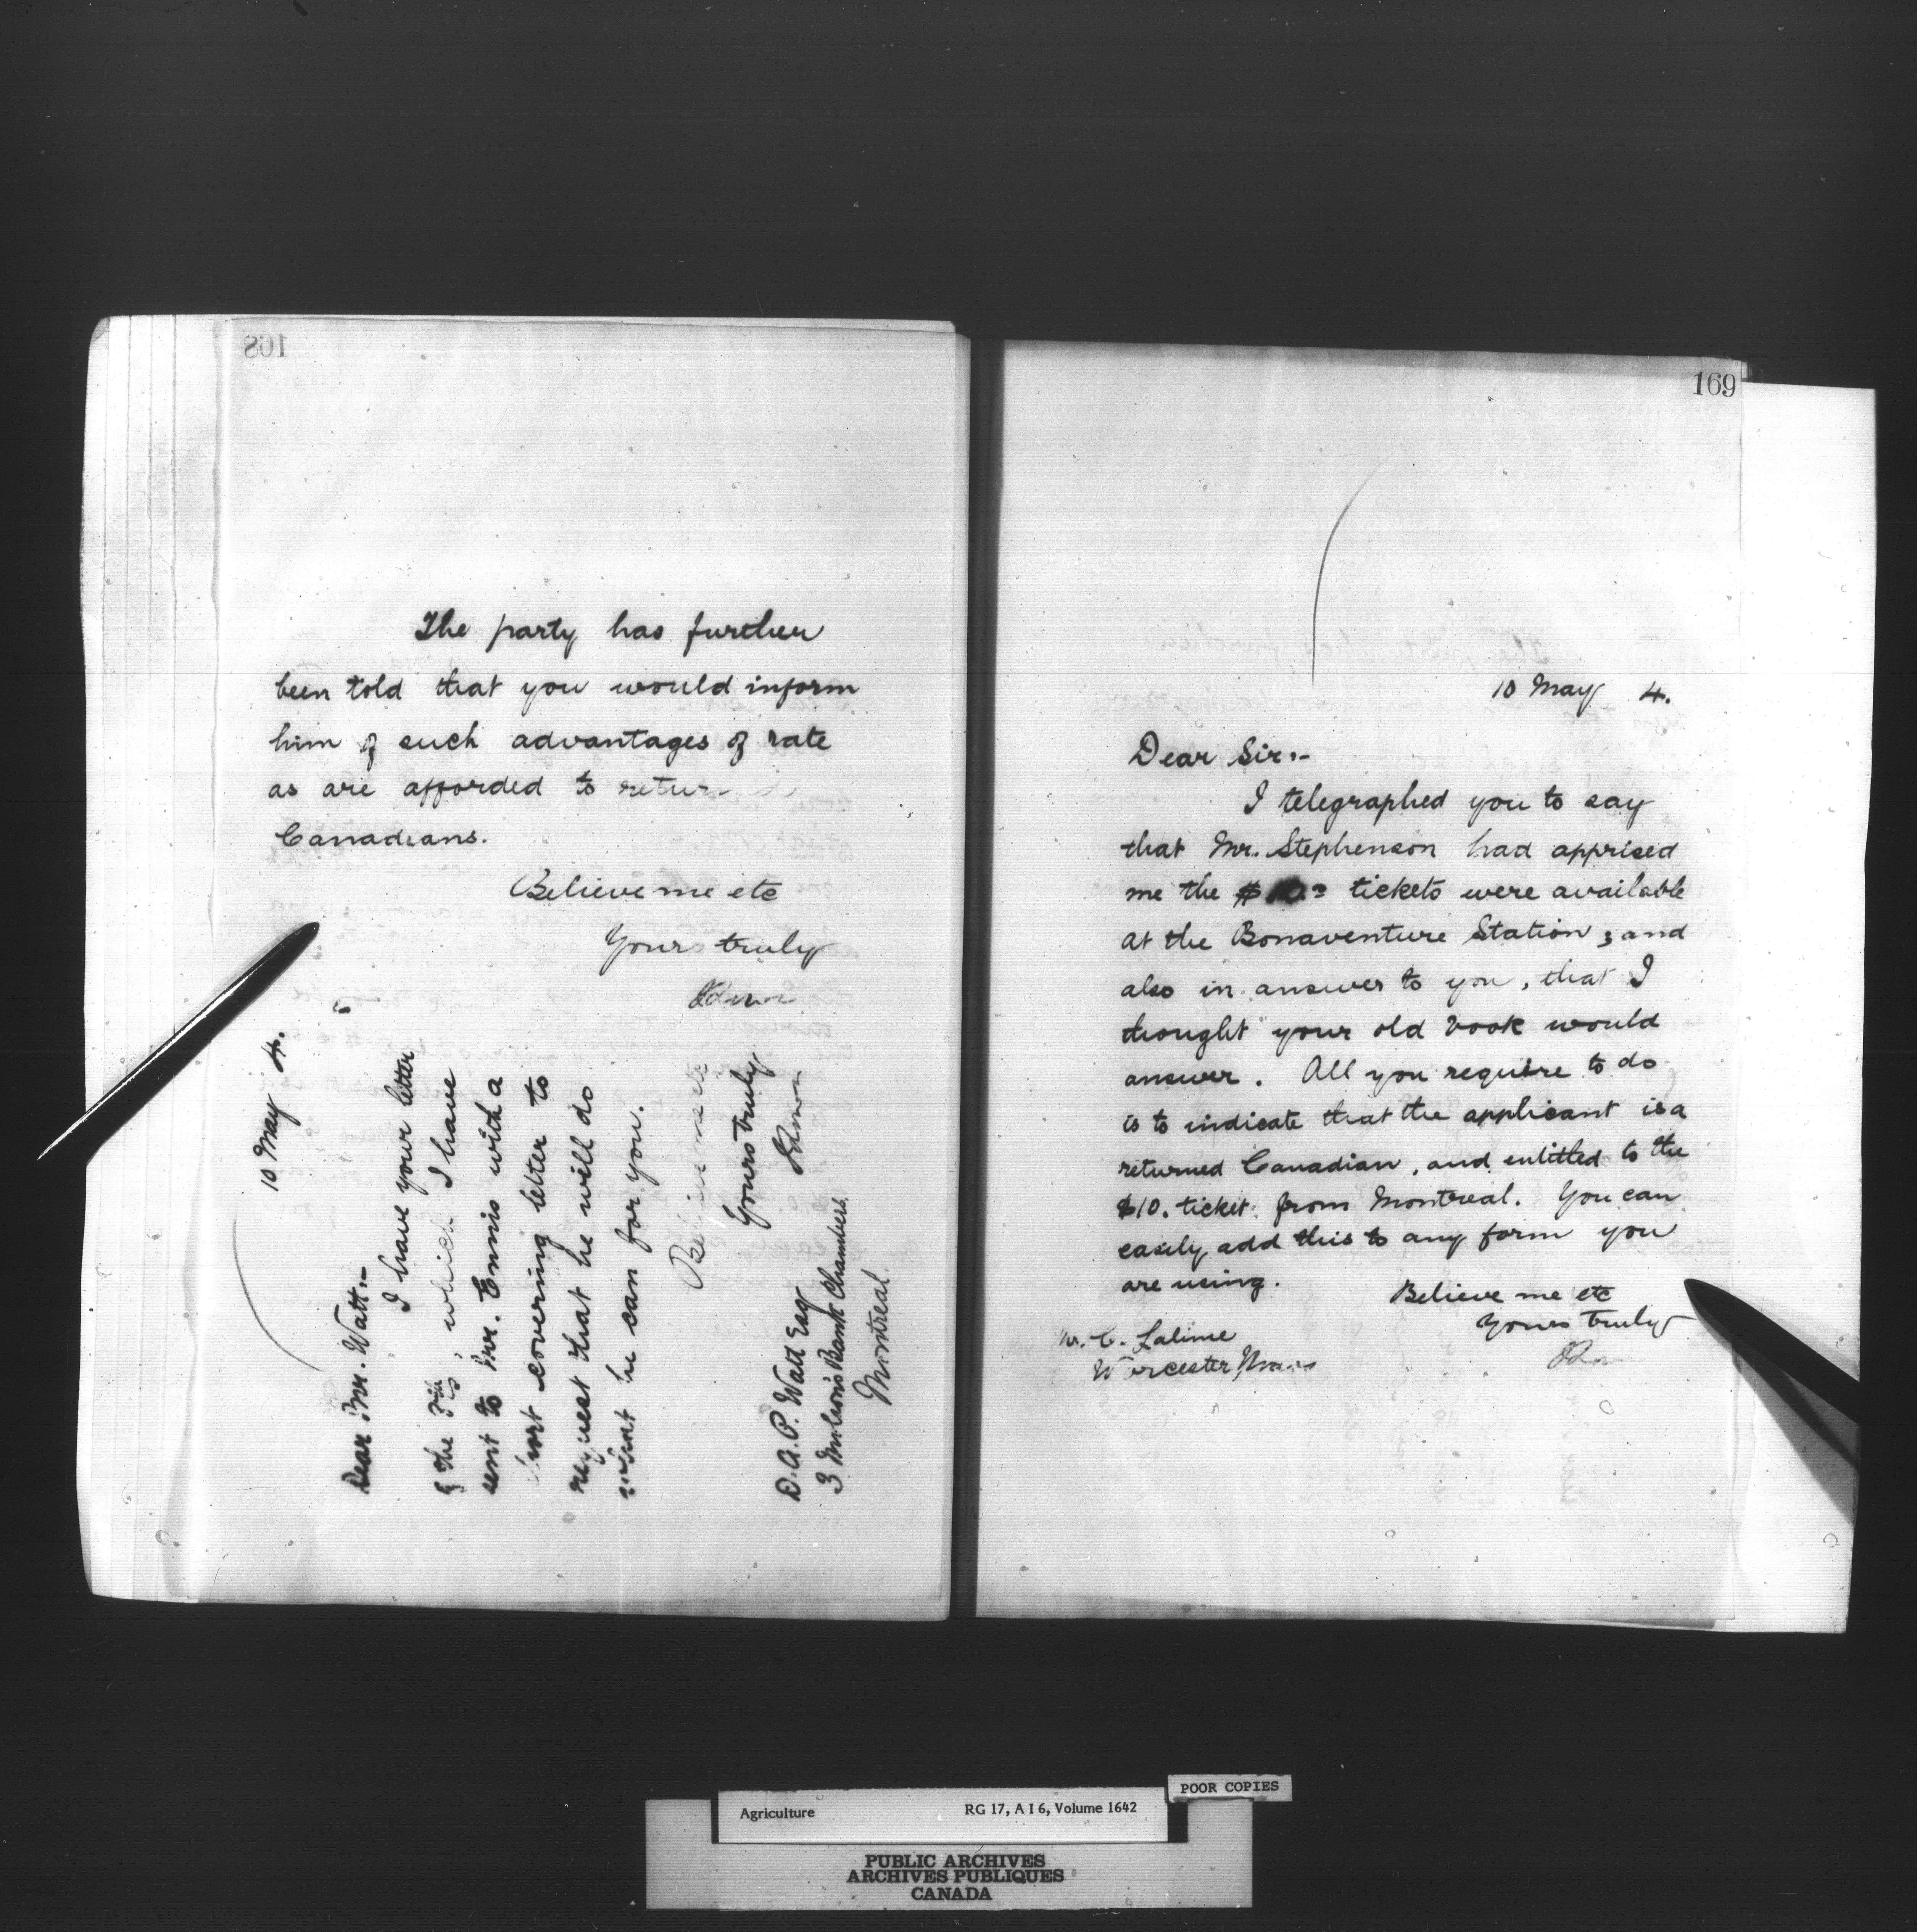 168
The party has further
been told that you would inform
him of such advantages of rate
as are afforded to
Canadians.
Believe me etc
Yours truly
10 May 4.
Dear Mr. Watt:-
I have your letter
of the, which I have
sent to Mr. Ennis with a
short covering letter to
request that he will do
what he can for you.
Believe me etc
Yours truly
D. A. P. Watt Esq
3 Molson's Bank Chambers
Montreal
169
10 May 4.
Dear Sir:-
I telegraphed you to say
that Mr. Stephenson had apprised
me the $10 tickets were available
at the Bonaventure Station; and
also in answer to you, that I
thought your old book would
answer. All you require to do
is to indicate that the applicant is a
returned Canadian, and entitled to the
$10. ticket from Montreal. You can
easily add this to any form you
are using.
Believe me etc
Yours truly
Mr. C. Lalime
Worcester, Mass
POOR COPIES
Agriculture RG 17, A I 6, Volume 1642
PUBLIC ARCHIVES
ARCHIVES PUBLIQUES
CANADA